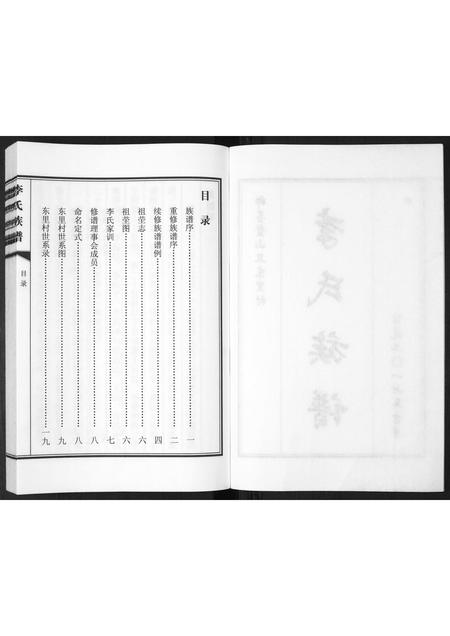 目录
族谱序……一
重修族谱序……二
续修族谱谱例……四
祖茔志……六
祖茔图……六
李氏家训……七
修谱理事会成员……八
命名定式……八
东里村世系图……九
东里村世系录……一九
李氏族谱
目录
李氏族谱